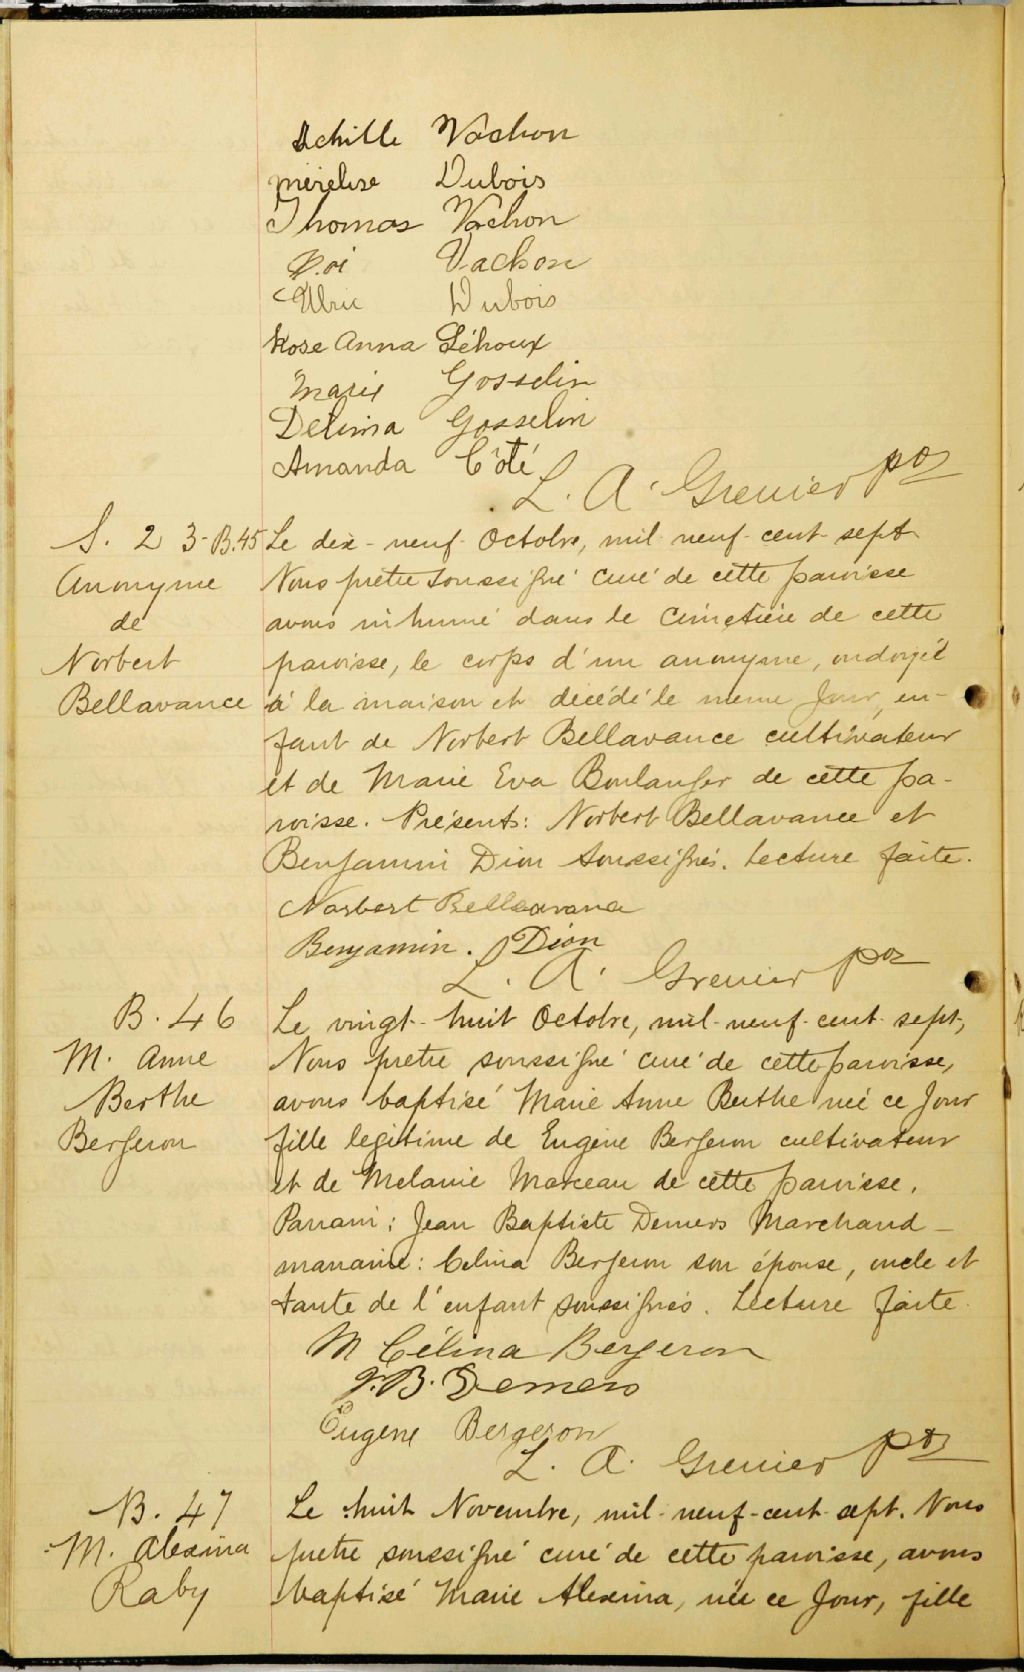 Achille Vachon
Mérélise Dubois
Thomas Vachon
Vachon
Ulric Dubois
Rose Anna Léhoux
Marie Gosselin
Delima Gosselin
Amanda Côté
L. A. Grenier ptr
S. 23-B.45
Anonyme
de
Norbert
Bellavance
Le dix-neuf Octobre, mil neuf-cent-sept
Nous prêtre soussigné curé de cette paroisse
avons inhumé dans le cimetière de cette
paroisse, le corps d'un anonyme, ondoyé
à la maison et décédé le même Jour, en-
fant de Norbert Bellavance cultivateur
et de Marie Eva Boulanger de cette pa-
roisse. Présents: Norbert Bellavance et
Benjamin Dion soussignés. Lecture faite.
Norbert Bellavance
Benjamin. Dion
L. A. Grenier ptr
B. 46
M. Anne
Berthe
Bergeron
Le vingt-huit Octobre, mil-neuf-cent-sept,
Nous prêtre soussigné curé de cette paroisse,
avons baptisé Marie Anne Berthe née ce Jour
fille legitime de Eugène Bergeron cultivateur
et de Melanie Marceau de cette paroisse.
Parrain: Jean Baptiste Demers Marchand-
marraine: Celina Bergeron son épouse, oncle et
tante de l'enfant soussignés. Lecture faite.
M Célina Bergeron
J.B. Demers
Eugène Bergeron
L. A. Grenier ptr
B. 47
M. Alexina
Raby
Le huit Novembre, mil-neuf-cent-sept. Nous
prêtre soussigné curé de cette paroisse, avons
baptisé Marie Alexina, née ce Jour, fille